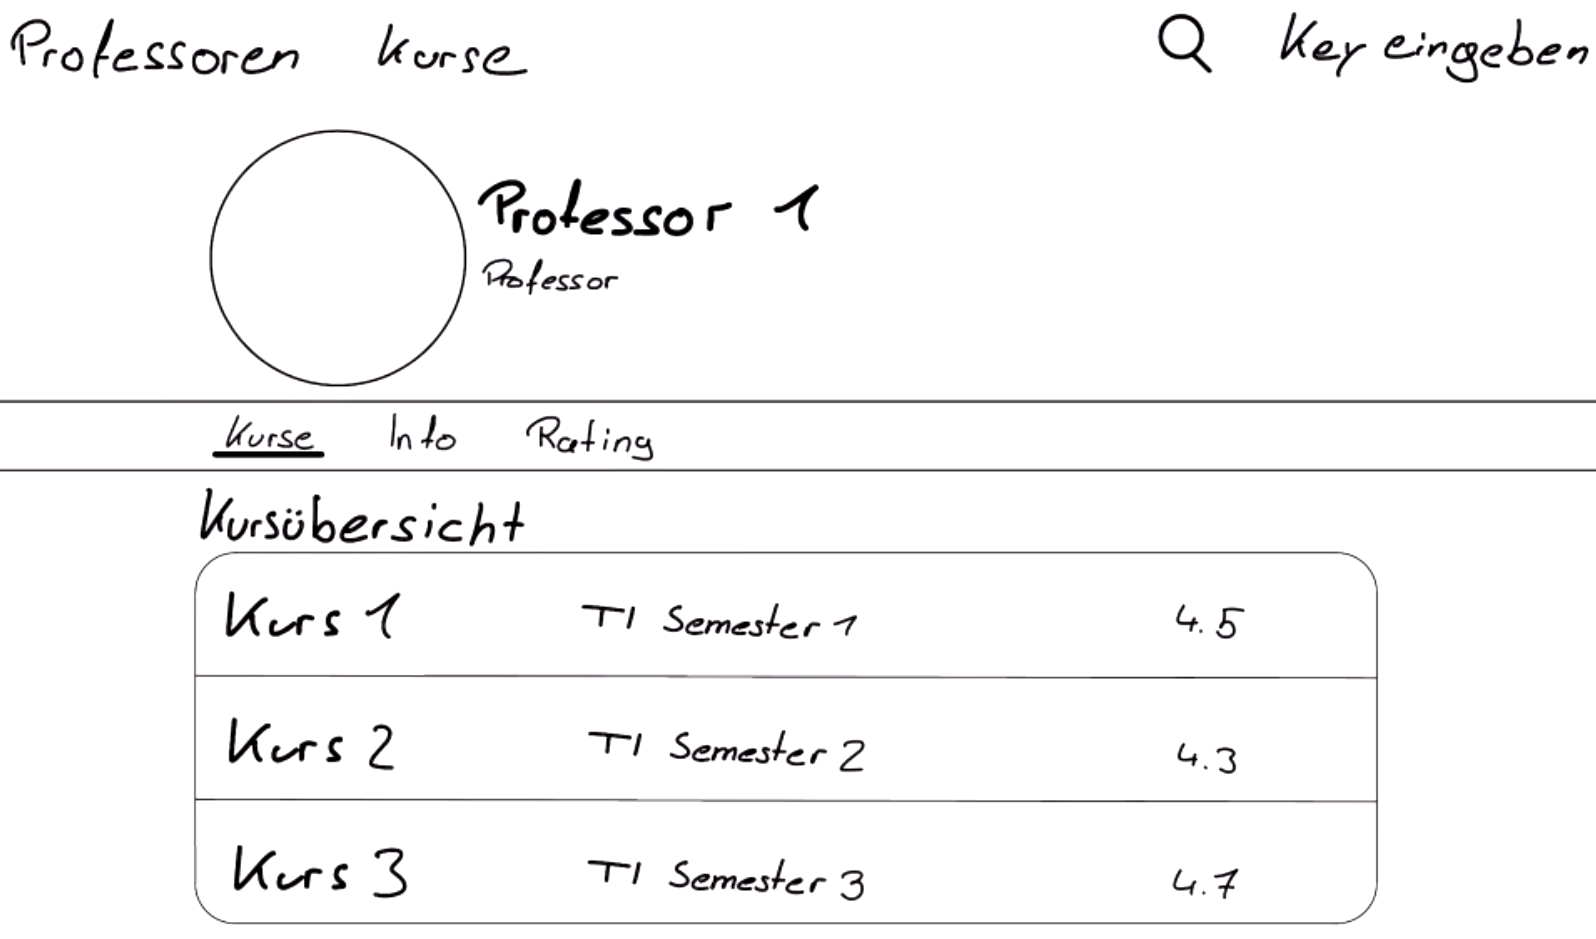 Professoren Kurse Key eingeben
Professor 1
Professor
Kurse Info Rating
Kursübersicht
Kurs 1 TI Semester 1 4.5
Kurs 2 TI Semester 2 4.3
Kurs 3 TI Semester 3 4.7